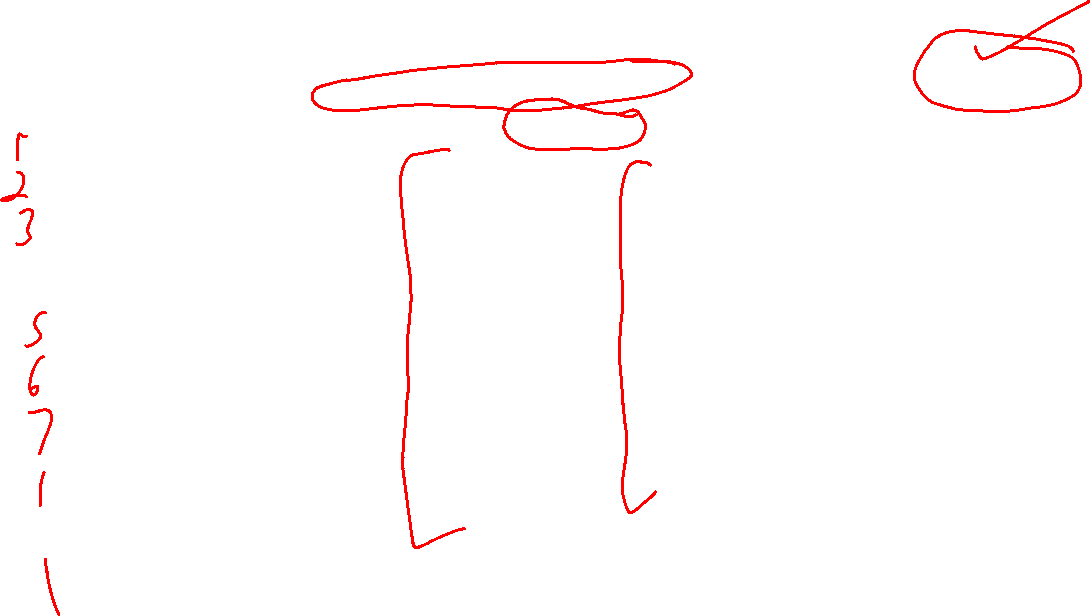 1
2
3
5
6
7
1